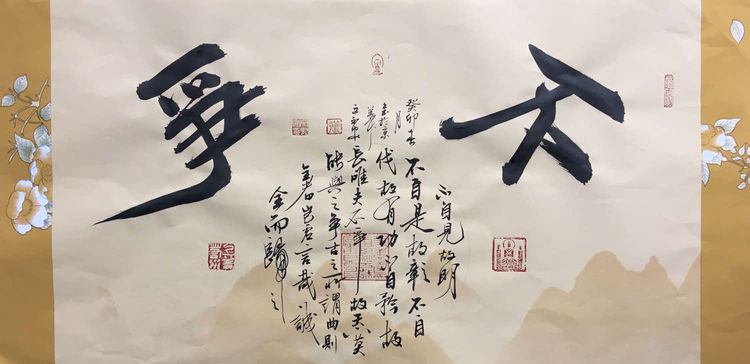 不爭
不自見故明
不自是故彰不自
伐故有功不自矜故
長唯夫不爭故天莫
能與之爭古之所謂曲則
全者豈虛言哉誠
全而歸之
癸卯春
月
於京